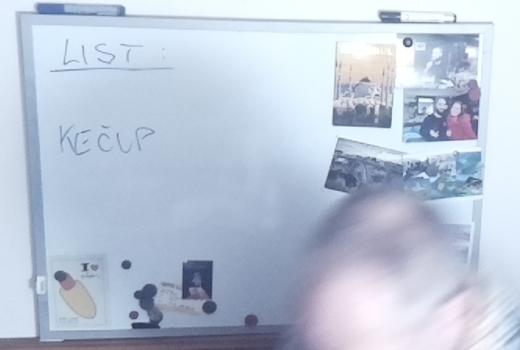 LIST:
KEČUP
I